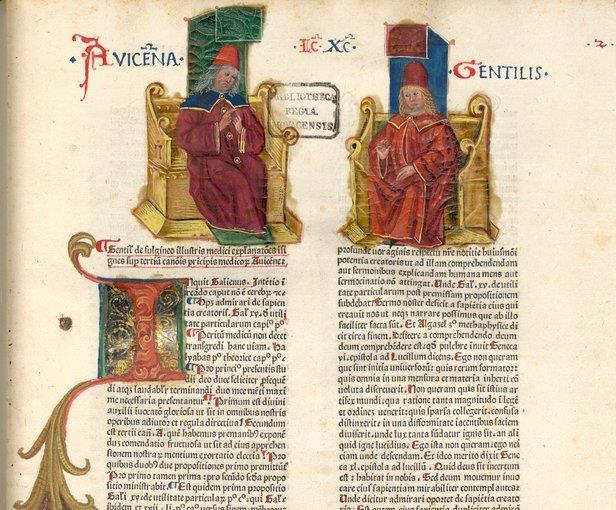 AVICENA.
Lc. XC.
GENTILIS.
.2.
BIBLIOTHECA
REGIA
MONACENSIS
Gentil' de fulgineo illustris medici explanatões isi
gnes sup tertiũ canõis pricipis medicoꝝ Auicene.
Inquit Galienus. Intẽtio i
Ops admirari de sapien
tia creatoris. Gal'.xv.ð utili
tate particularum capi°
Peritũ medicũ non decet
transgredi hanc uiam. Ha
lyabas theorice cap°
Pro prici° presentis stu
dii deo duce feliciter psequẽ
di atqꝫ laudabil'r terminandi duo mee mẽti maxi
me necessaria presentantur. Primum est diuini
auxilii iuocatõ gloriosa ut sit in omnibus nostris
operibus adiutor et regula directiua. Secundum
est tertii cañ. A. quẽ habemus premanibꝰ exponẽ
dus comendatio introitus ut sit ad eius apprehen
sionem nostraꝝ mentium exortatio electa. Pro
quibus duobꝰ due propositiones primo premittũt
Pro primo tamen prima: pro secũdo secũda propo
sitio ministrabit. Est quidem prima propositio
Gal'i .xv. de utilitate particulaꝝ
profunde uoraginis respectu nr̃e notitie
potentia creatoris ut ad illam comprehendendam
aut sermonibus explicandam humana mens aut
sermocinatio nõ attingat. Unde Gal'.xv. de utili
tate particularum post premissam propositionem
subdebat. Sermo noster deficit a sapiẽtia eius qui
creauit nos et narratio possibilium que ab illo
faciliter facta sũt. Et Algazel methaphysice di
cit circa finem. Deficere a comprehendendo deum
deum comprehẽdere est. qð pulchre inuit Seneca
epistola ad Lucillum dicens. Ego non queram
que sint initia uniuersoꝝ: quis rerum formator:
quis omnia in una mensura et materia inherẽti cõ
uoluta discreuerit. Non queram quis sit istius ar
tifex mundi. qua ratione tanta magnitudo i legẽ
et ordinez uenerit: quis sparsa collegerit. confusa
distinxerit. in una difformitate iacentibus faciem
diuiserit. unde lux tanta fũdatur ignis sit. an ali
quid igne lucidius. Ego ista non queram: ego nei
ciam unde desendam. Et ideo merito dixit Sene
ca epistola ad luciliũ. Quid deus sit incertum
est: habitat in nobis. Sed deum mouemur inuo
care eius sapientiam mirabiliter contemplantes.
Unde dicitur admirari oportet de sapiẽtia creato